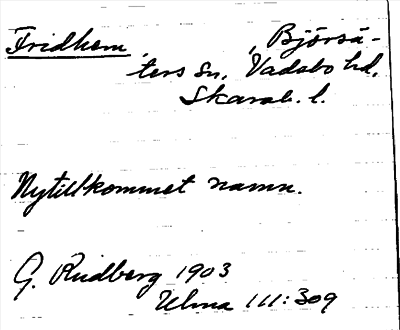 Fridhem, Björsä-
ters sn, Vadsbo hd,
Skarab. l.
Nytillkommet namn.
G. Rudberg 1903
Ulma 111:309